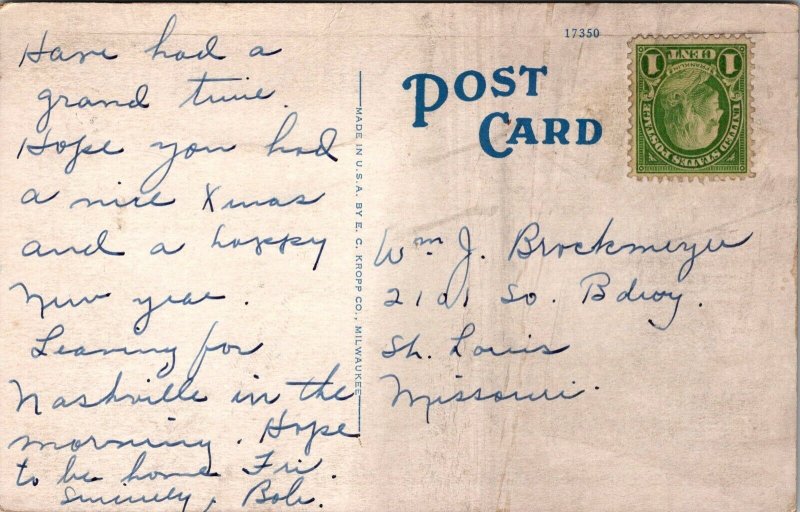 Have had a
grand time.
Hope you had
a nice Xmas
and a happy
New year.
Leaving for
Nashville in the
morning. Hope
to be home Fri.
Sincerely, Bob.
MADE IN U.S.A. BY E. C. KROPP CO., MILWAUKEE
17350
POST
CARD
1 CENT 1
FRANKLIN
UNITED STATES POSTAGE
Wm. J. Brockmeyer
2101 So. Bdwy.
St. Louis
Missouri.